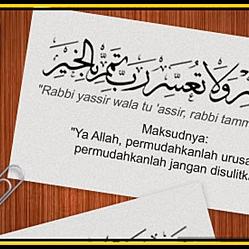 وَلَا تُعَسِّرْ رَبِّ تَمِّمْ بِالْخَيْرِ
"Rabbi yassir wala tu 'assir, rabbi
Maksudnya:
"Ya Allah, permudahkanlah
permudahkanlah jangan